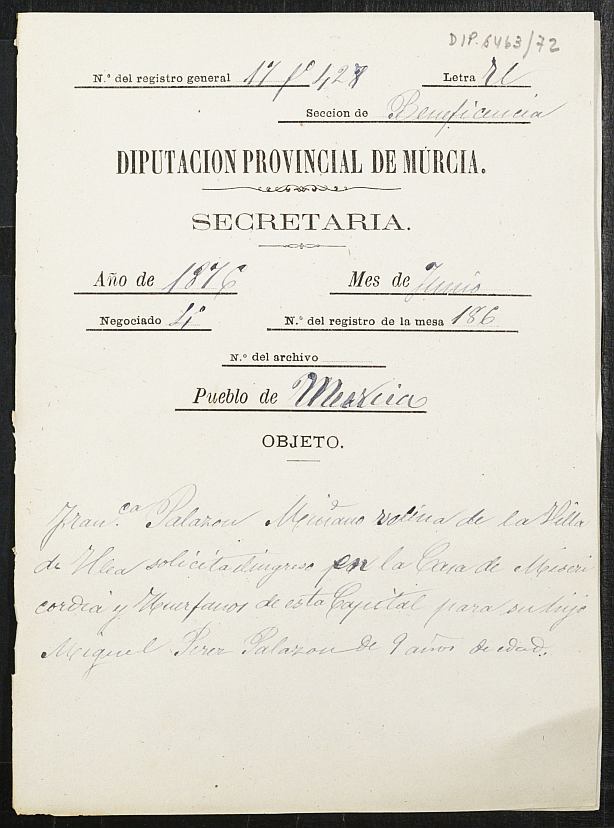 DIP. 6463/72
N.º del registro general 17
Letra
Seccion de Beneficencia
DIPUTACION PROVINCIAL DE MÚRCIA.
SECRETARIA.
Año de 1876 Mes de Junio
Negociado 4º N.º del registro de la mesa 186
N.º del archivo
Pueblo de Murcia
OBJETO.
Fran.ca Palazon Miñano vecina de la Villa
de Ulea solicita el ingreso en la Casa de Miseri
cordia y Huerfanos de esta Capital para su hijo
Miguel Perez Palazon de 9 años de edad.